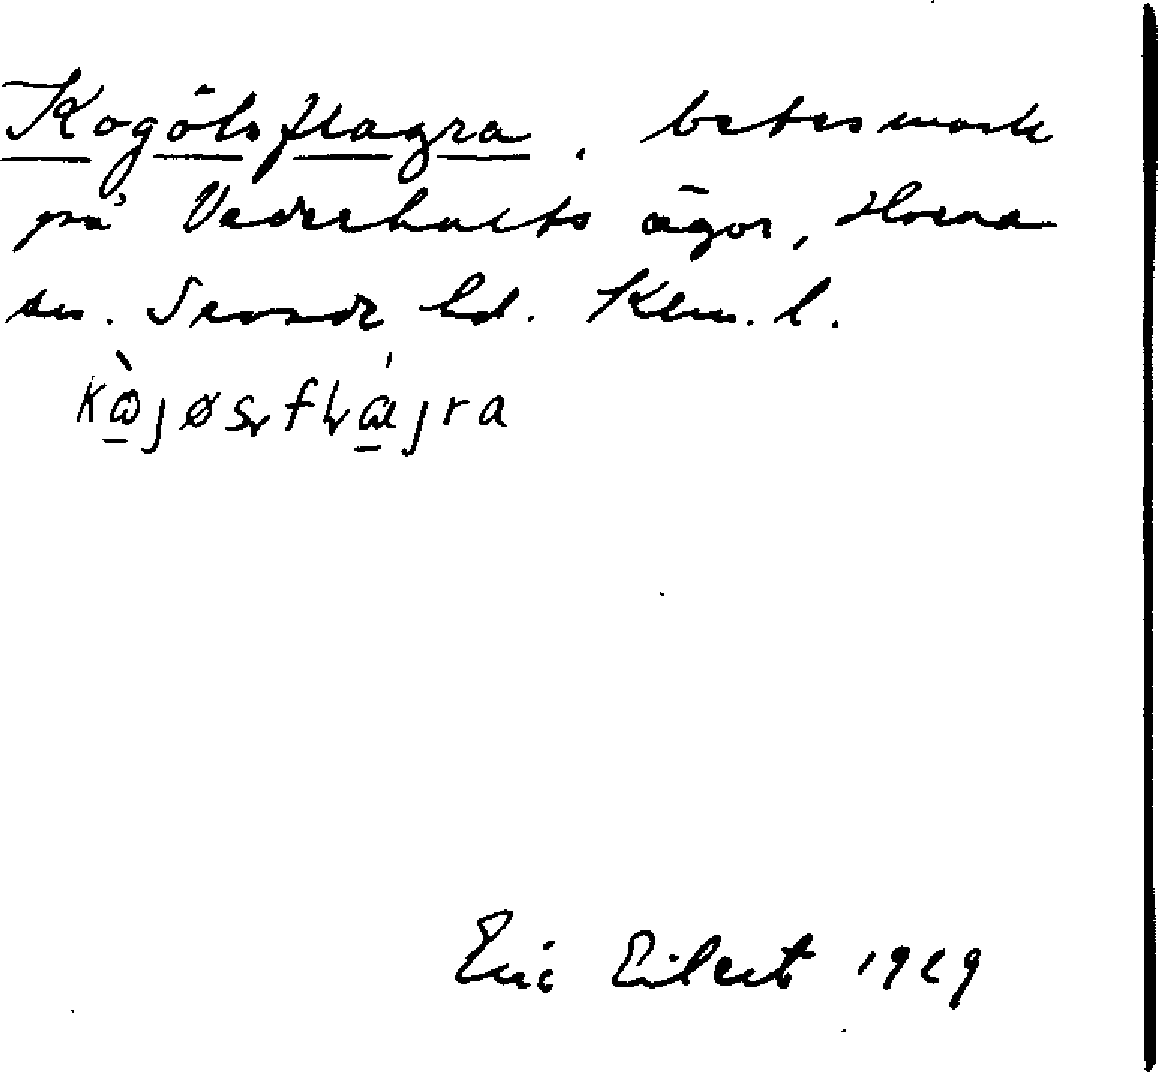 Kogölsflagra. betesmark
på Vederhults ägor, Horns
sn. Ser hd. Klm. l.
kòjøsflájra
Eric Eilert 1929